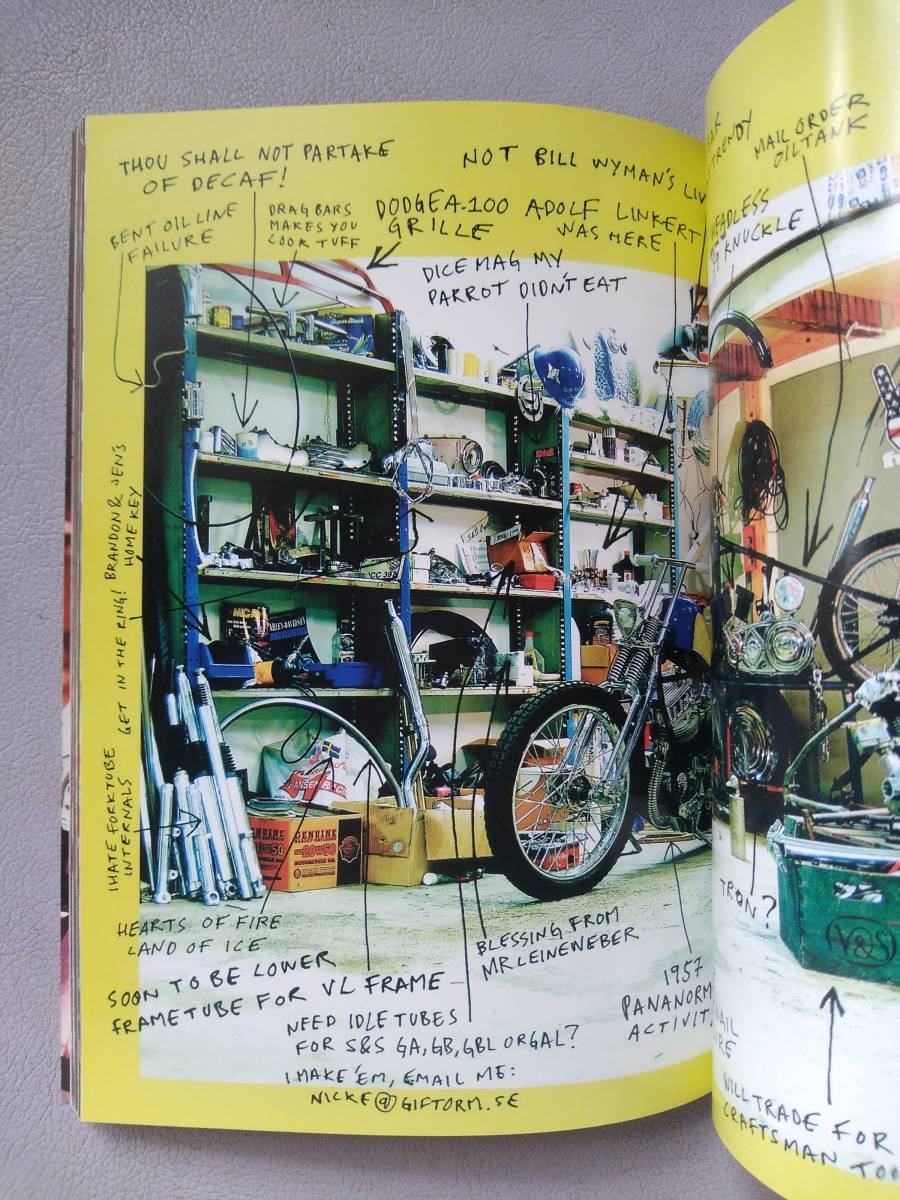 THOU SHALL NOT PARTAKE
OF DECAF!
NOT BILL WYMAN'S LIV
BENT OIL LINE
FAILURE
DRAG BARS
MAKES YOU
LOOK TUFF
DODGE A-100
GRILLE
ADOLF LINKERT
WAS HERE
DICE MAG MY
PARROT DIDN'T EAT
GET IN THE RING!
BRANDON & JEN'S
HOME KEY
I HATE FORKTUBE
INTERNALS
HEARTS OF FIRE
LAND OF ICE
SOON TO BE LOWER
FRAMETUBE FOR VL FRAME
BLESSING FROM
MR LEINEWEBER
NEED IDLE TUBES
FOR S&S GA, GB, GBL OR GAL?
I MAKE 'EM, EMAIL ME:
NICKE@GIFTORM.SE
1957
PANANORM
ACTIVIT
GENUINE
20W50
GENUINE
HARLEY-DAVIDSON
20W50
MOTORCYCLE OIL
HARLEY-DAVIDSON
TRENDY
MAIL ORDER
OIL TANK
KNUCKLE
TRON?
V&S
WILL TRADE FOR
CRAFTSMAN TOO